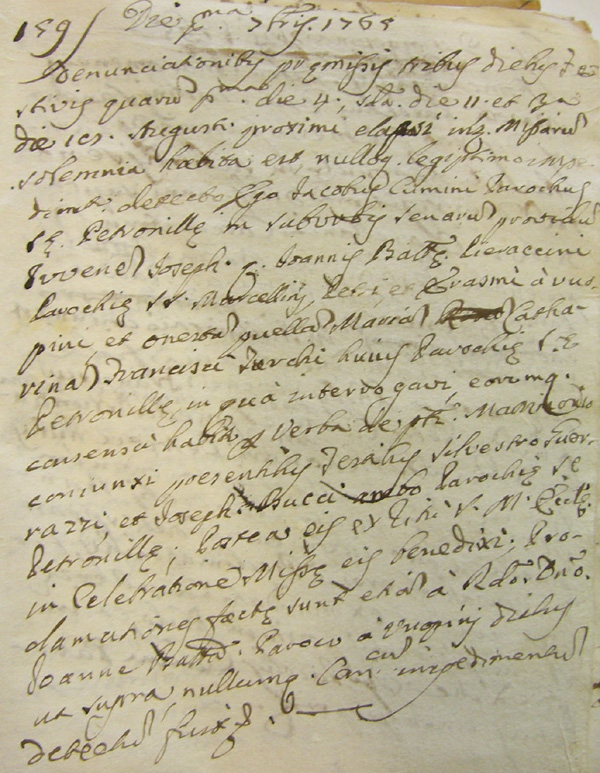 159/ Die p.ma 7bris. 1765
Denunciationibus premissis tribus diebus fe
stivis quarū p.ma die 4., sda. die 11. et 3.a
die 15. Augusti proximi elapsi int. Missarū
solemnia habita est, nulloq. legitimo impe
dim.to detecto Ego Jacobus Cimini Parochus
S.ę Petronillę in suburbis Senarū
Juvenē Joseph. q. Joannis Battę. Pieraccini
Parochię SS. Marcellini, Petri, et Erasmi à Vuo
pini et onestā puellā Mariā Catha-
rinā Francisci Turchi huius Parochię S.ę
Petronillę, in quà interrogavi, eorumq.
consensū habito p Verba de pti. Matrimonio
coniunxi presentibus Testibus Silvestro Guer-
razzi, et Joseph. Bucci ambo Parochię Sę
Petronillę; Postea eis ex Ritu S. M. Ecclę.
in Celebratione Missę eis benedixi; Pro-
clamationes factę sunt etiā à Rdo. Dno.
Joanne Battā. Parocō à Vuopini diebus
ut supra, nullumq. Can.cū impedimentū
detectū fuit.